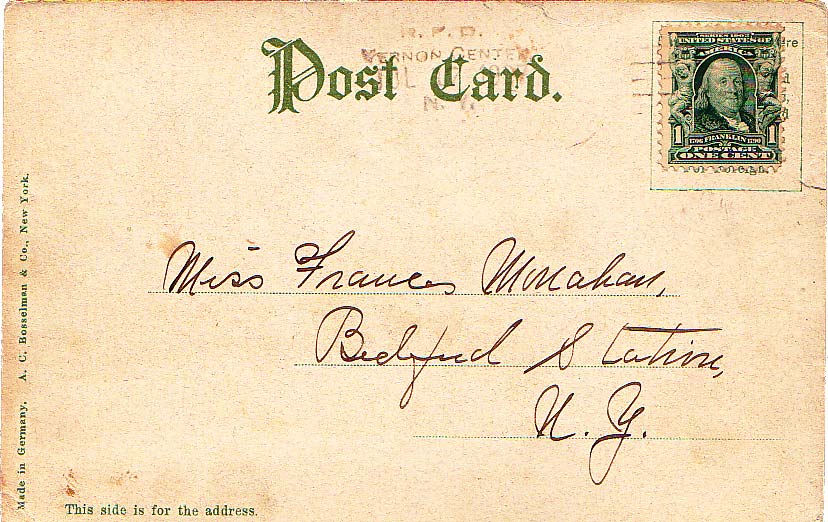 R. F. D.
VERNON CENTER
JUL
N. Y.
Post Card.
SERIES 1902
UNITED STATES OF
AMERICA
1 1706 FRANKLIN 1790 1
POSTAGE
ONE CENT
Miss Frances Monahan,
Bedford Station,
N. Y.
Made in Germany. A. C. Bosselman & Co., New York.
This side is for the address.